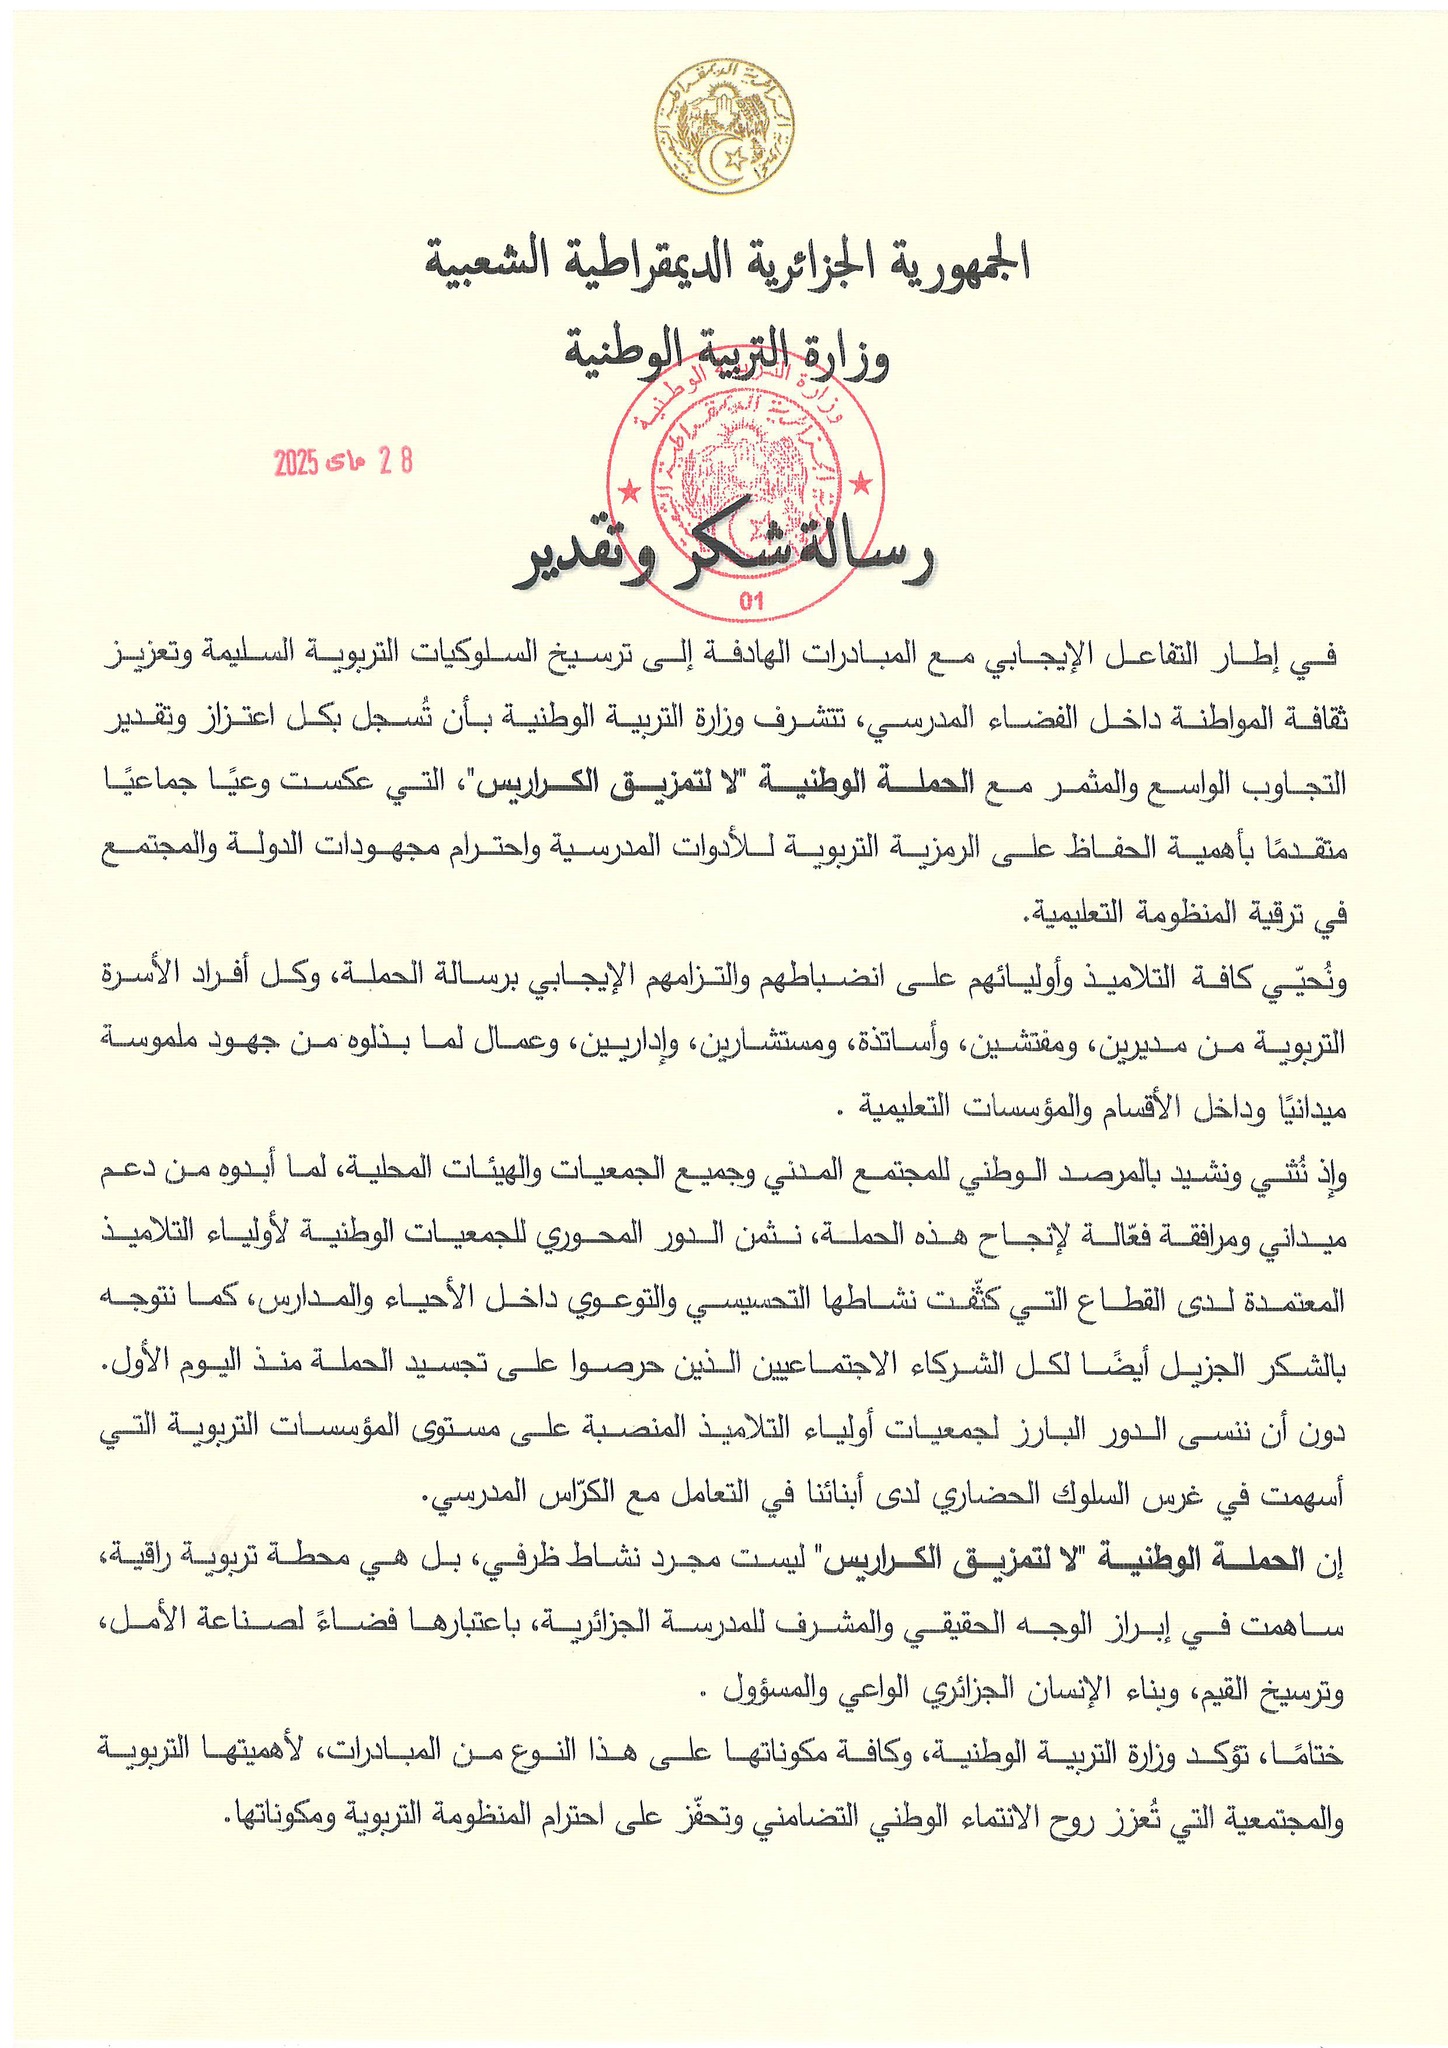 الجمهورية الجزائرية الديمقراطية الشعبية
وزارة التربية الوطنية
وزارة التربية الوطنية
28 ماي 2025
رسالة شكر وتقدير
01
في إطار التفاعل الإيجابي مع المبادرات الهادفة إلى ترسيخ السلوكيات التربوية السليمة وتعزيز
ثقافة المواطنة داخل الفضاء المدرسي، تتشرف وزارة التربية الوطنية بأن تُسجل بكل اعتزاز وتقدير
التجاوب الواسع والمثمر مع الحملة الوطنية "لا لتمزيق الكراريس"، التي عكست وعيًا جماعيًا
متقدمًا بأهمية الحفاظ على الرمزية التربوية للأدوات المدرسية واحترام مجهودات الدولة والمجتمع
في ترقية المنظومة التعليمية.
ونُحيّي كافة التلاميذ وأوليائهم على انضباطهم والتزامهم الإيجابي برسالة الحملة، وكل أفراد الأسرة
التربوية من مديرين، ومفتشين، وأساتذة، ومستشارين، وإداريين، وعمال لما بذلوه من جهود ملموسة
ميدانيًا وداخل الأقسام والمؤسسات التعليمية .
وإذ نُثني ونشيد بالمرصد الوطني للمجتمع المدني وجميع الجمعيات والهيئات المحلية، لما أبدوه من دعم
ميداني ومرافقة فعّالة لإنجاح هذه الحملة، نثمن الدور المحوري للجمعيات الوطنية لأولياء التلاميذ
المعتمدة لدى القطاع التي كثّفت نشاطها التحسيسي والتوعوي داخل الأحياء والمدارس، كما نتوجه
بالشكر الجزيل أيضًا لكل الشركاء الاجتماعيين الذين حرصوا على تجسيد الحملة منذ اليوم الأول.
دون أن ننسى الدور البارز لجمعيات أولياء التلاميذ المنصبة على مستوى المؤسسات التربوية التي
أسهمت في غرس السلوك الحضاري لدى أبنائنا في التعامل مع الكرّاس المدرسي.
إن الحملة الوطنية "لا لتمزيق الكراريس" ليست مجرد نشاط ظرفي، بل هي محطة تربوية راقية،
ساهمت في إبراز الوجه الحقيقي والمشرف للمدرسة الجزائرية، باعتبارها فضاءً لصناعة الأمل،
وترسيخ القيم، وبناء الإنسان الجزائري الواعي والمسؤول .
ختامًا، تؤكد وزارة التربية الوطنية، وكافة مكوناتها على هذا النوع من المبادرات، لأهميتها التربوية
والمجتمعية التي تُعزز روح الانتماء الوطني التضامني وتحفّز على احترام المنظومة التربوية ومكوناتها.